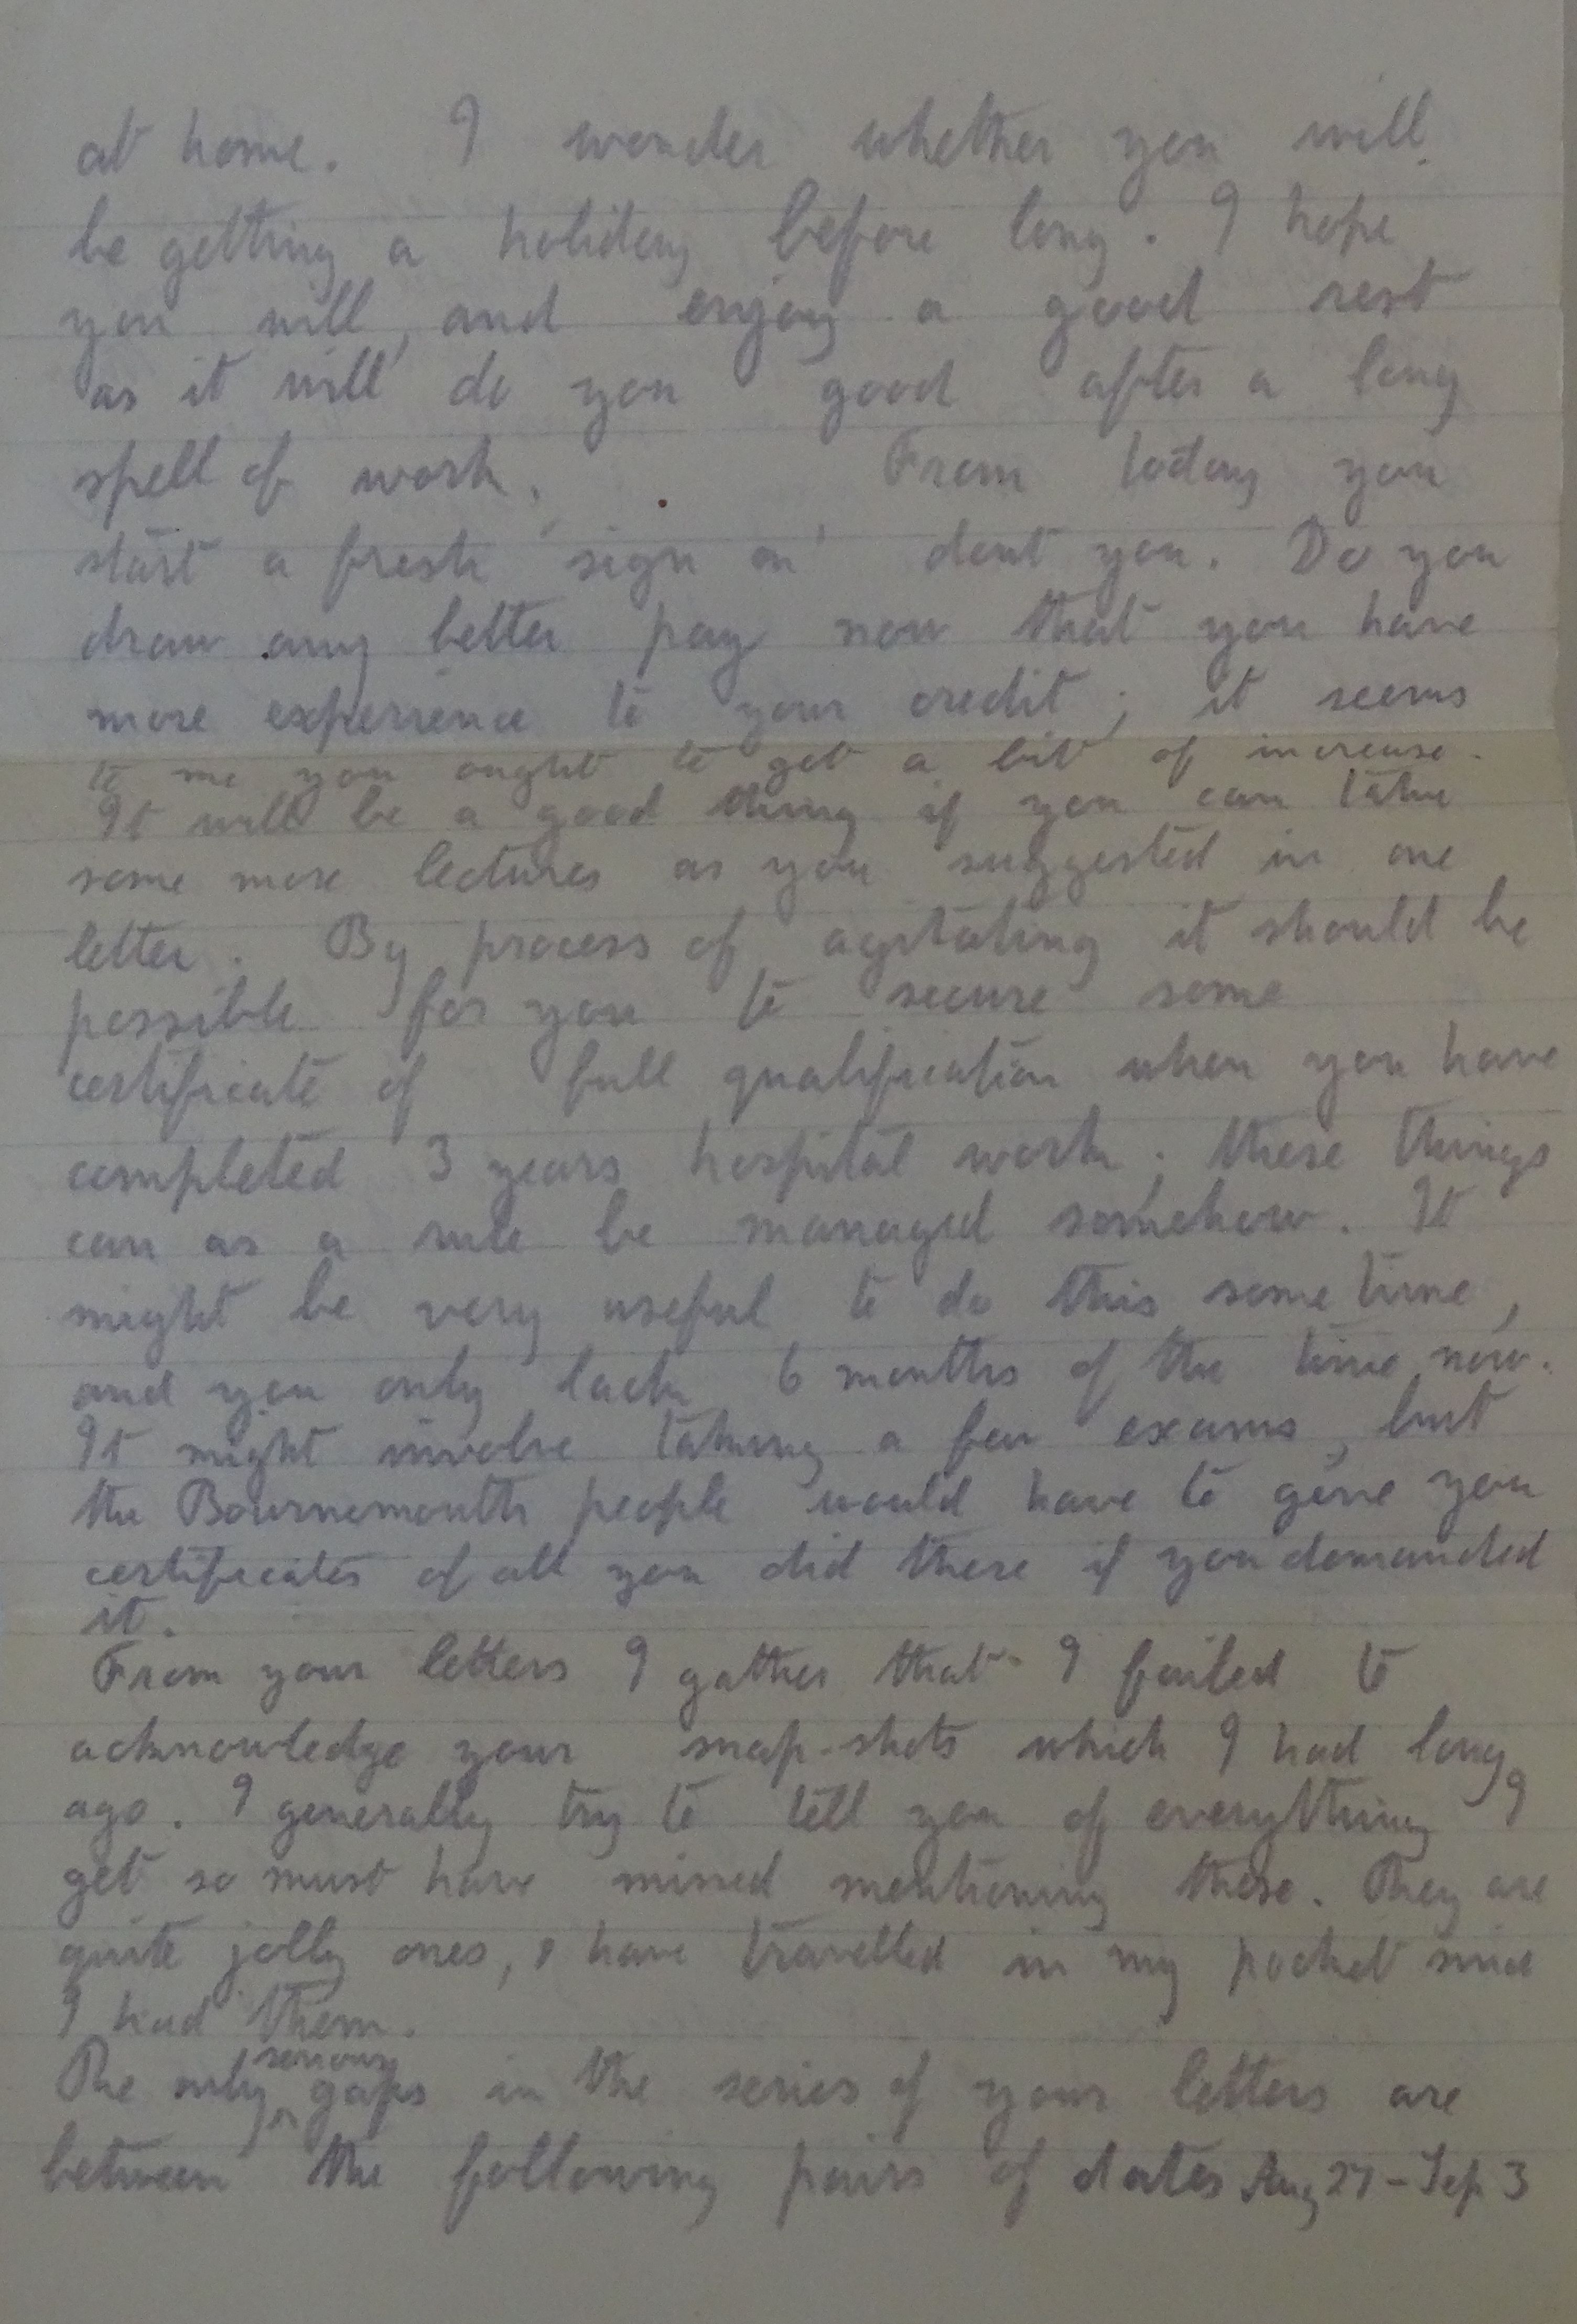 at home. I wonder whether you will
be getting a holiday before long. I hope
you will, and enjoy a good rest
as it will do you good after a long
spell of work. From today you
start a fresh 'sign on' dont you. Do you
draw any better pay now that you have
more experience to your credit; it seems
to me you ought to get a bit of increase.
It will be a good thing if you can take
some more lectures as you suggested in one
letter. By process of agitating it should be
possible for you to secure some
certificate of full qualification when you have
completed 3 years hospital work; these things
can as a rule be managed somehow. It
might be very useful to do this some time,
and you only lack 6 months of the time now.
It might involve taking a few exams, but
the Bournemouth people would have to give you
certificates of all you did there if you demanded
it.
From your letters I gather that I failed to
acknowledge your snap-shots which I had long
ago. I generally try to tell you of everything I
get so must have missed mentioning these. They are
quite jolly ones, & have travelled in my pocket since
I had them.
The only serious gaps in the series of your letters are
between the following pairs of dates Aug 27 - Sep 3